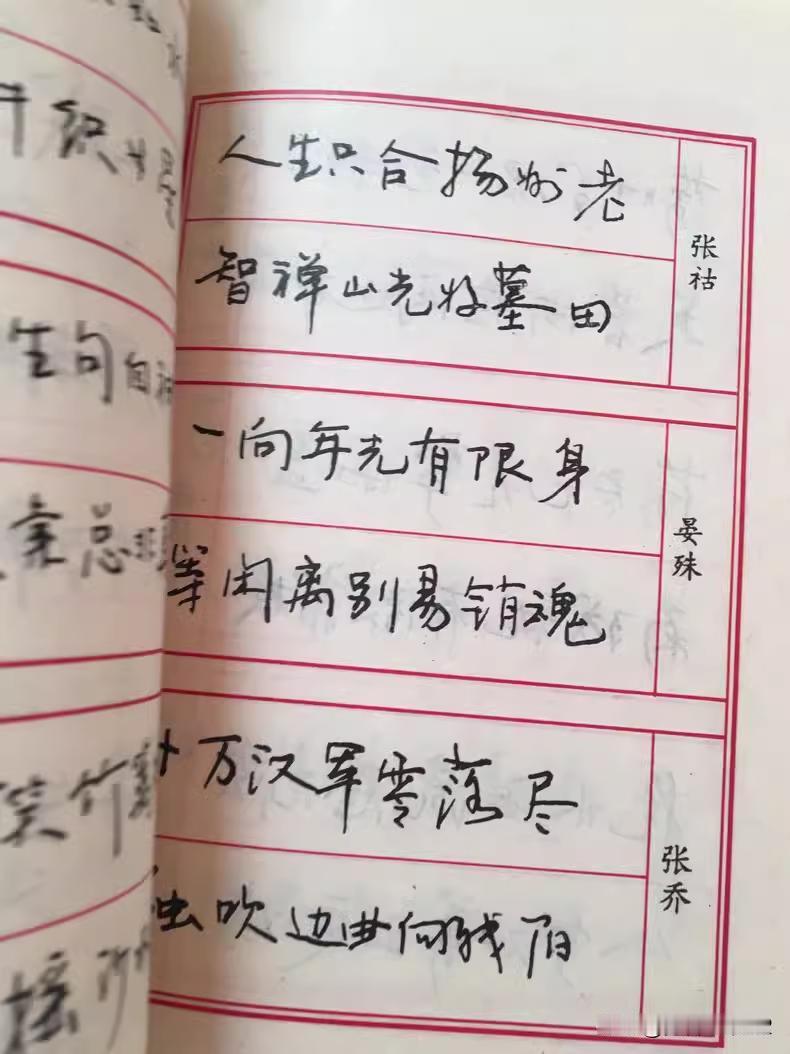 织
生句自
总
笑竹
摇
人生只合扬州老
智禅山光好墓田
张祜
一向年光有限身
等闲离别易销魂
晏殊
十万汉军零落尽
独吹边曲向残阳
张乔